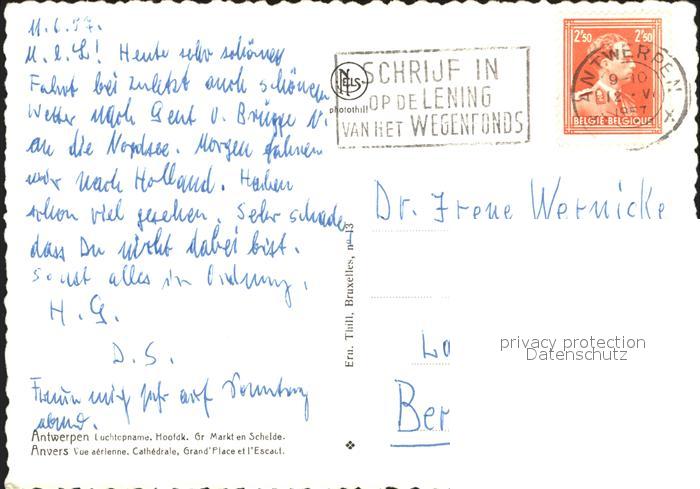 11.6.57.
M. L. L! Heute sehr schöne
Fahrt bei zuletzt auch schönem
Wetter nach Gent u. Brügge u.
an die Nordsee. Morgen fahren
wir nach Holland. Haben
schon viel gesehen. Sehr schade,
dass Du nicht dabei bist.
Sonst alles in Ordnung.
H. G.
D. S.
Freue mich sehr auf Sonntag
abend.
Antwerpen Luchtopname, Hoofdk. Gr Markt en Schelde.
Anvers Vue aérienne, Cathédrale, Grand'Place et l'Escaut.
Ern. Thill, Bruxelles, nº 13
NELS
photothill
SCHRIJF IN
OP DE LENING
VAN HET WEGENFONDS
2F50 2F50
BELGIE-BELGIQUE
ANTWERPEN
9-10
12 - V.
1957
X
Dr. Irene Wernicke
Lo
Ber
privacy protection
Datenschutz